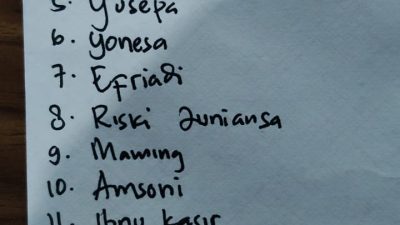 5. Yusepa
6. Yonesa
7. Efriadi
8. Riski Juniansa
9. Mawing
10. Amsoni
11. Ibnu Kasir